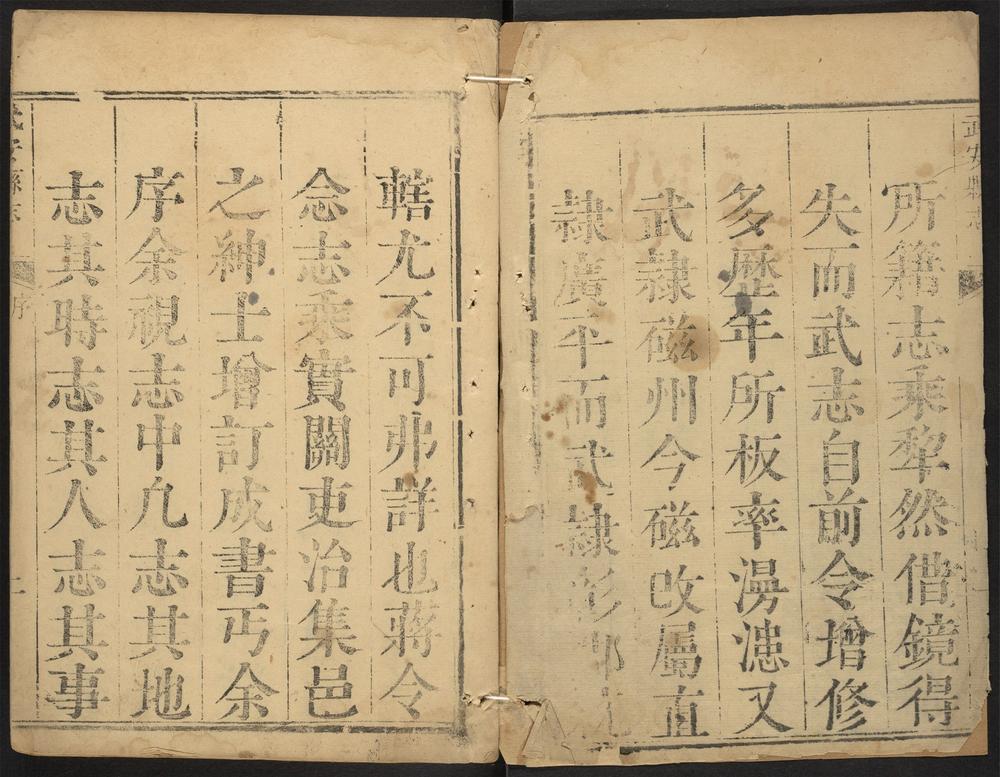 武安縣志
所籍志乘犂然借鏡得
失而武志自前令增修
多歷年所板率漫漶又
武隸磁州今磁改屬直
隸廣平而武隸彰郡
轄尤不可弗詳也蔣令
念志乘實關吏治集邑
之紳士增訂成書丐余
序余視志中凢志其地
志其時志其人志其事
武安縣志
序
二